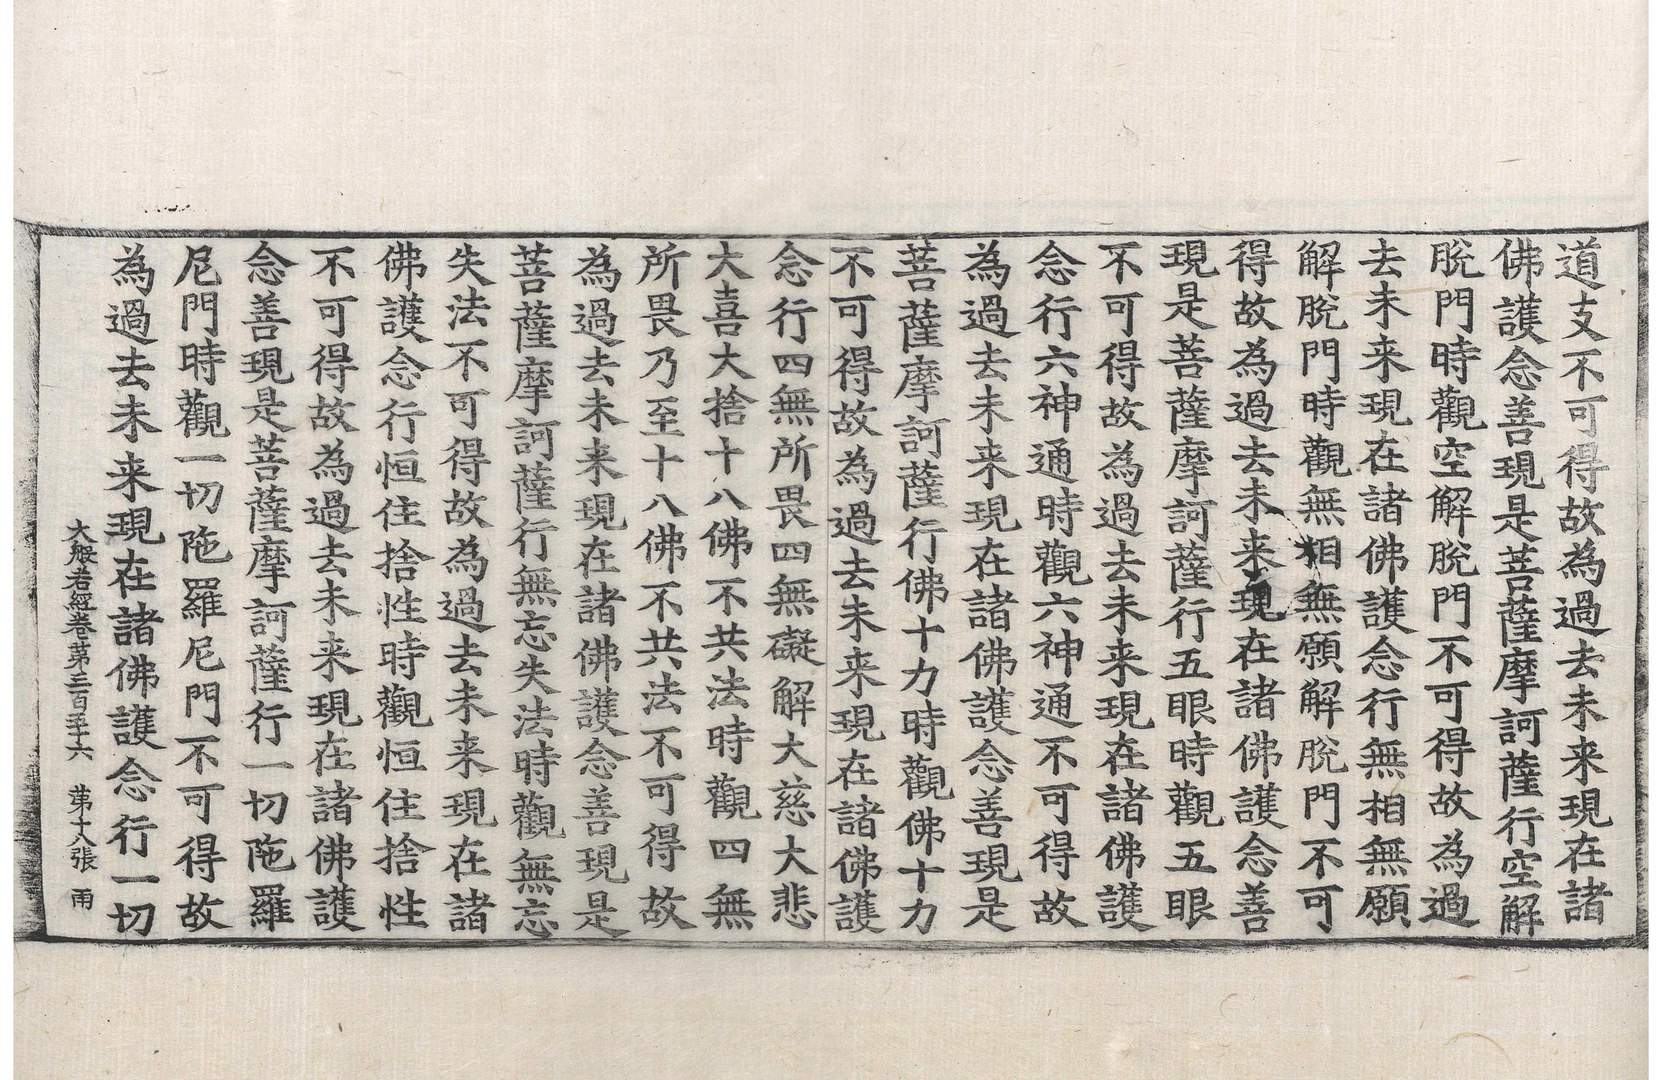 道支不可得故為過去未来現在諸
佛護念善現是菩薩摩訶薩行空解
脫門時觀空解脫門不可得故為過
去未来現在諸佛護念行無相無願
解脫門時觀無相無願解脫門不可
得故為過去未来現在諸佛護念善
現是菩薩摩訶薩行五眼時觀五眼
不可得故為過去未来現在諸佛護
念行六神通時觀六神通不可得故
為過去未来現在諸佛護念善現是
菩薩摩訶薩行佛十力時觀佛十力
不可得故為過去未来現在諸佛護
念行四無所畏四無礙解大慈大悲
大喜大捨十八佛不共法時觀四無
所畏乃至十八佛不共法不可得故
為過去未来現在諸佛護念善現是
菩薩摩訶薩行無忘失法時觀無忘
失法不可得故為過去未来現在諸
佛護念行恒住捨性時觀恒住捨性
不可得故為過去未来現在諸佛護
念善現是菩薩摩訶薩行一切陁羅
尼門時觀一切陁羅尼門不可得故
為過去未来現在諸佛護念行一切
大般若經卷第三百五十六 第十八張 雨